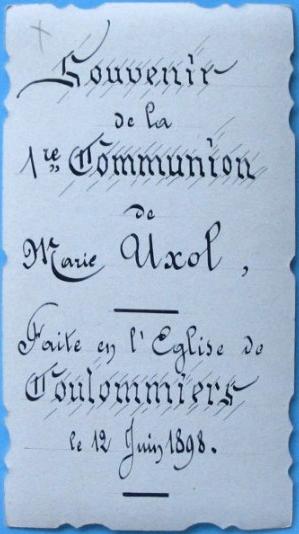 Souvenir
de la
1re Communion
de
Marie Uxol,
Faite en l'Eglise de
Coulommiers
le 12 Juin 1898.